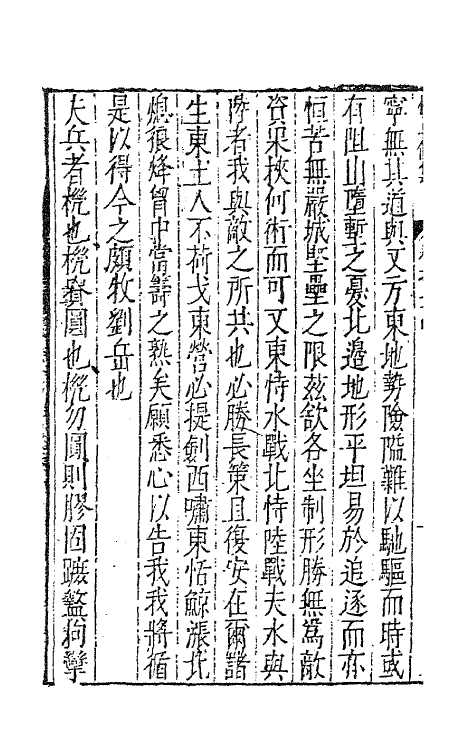 寧無其道與又方東地勢險隘難以馳驅而時或
有阻山墮塹之憂北邉地形平坦易於追逐而亦
恒苦無嚴城堅壘之限玆欲各坐制形勝無爲敵
資果挾何術而可又東恃水戰北恃陸戰夫水與
陸者我與敵之所共也必勝長策且復安在爾諸
生東主人不荷戈東營必提劍西嘯東恬鯨漲北
熄狼烽胷中當籌之熟矣願悉心以告我我將循
是以得今之頗牧劉岳也
夫兵者機也機貴圓也機勿圓則膠固跛盭拘攣